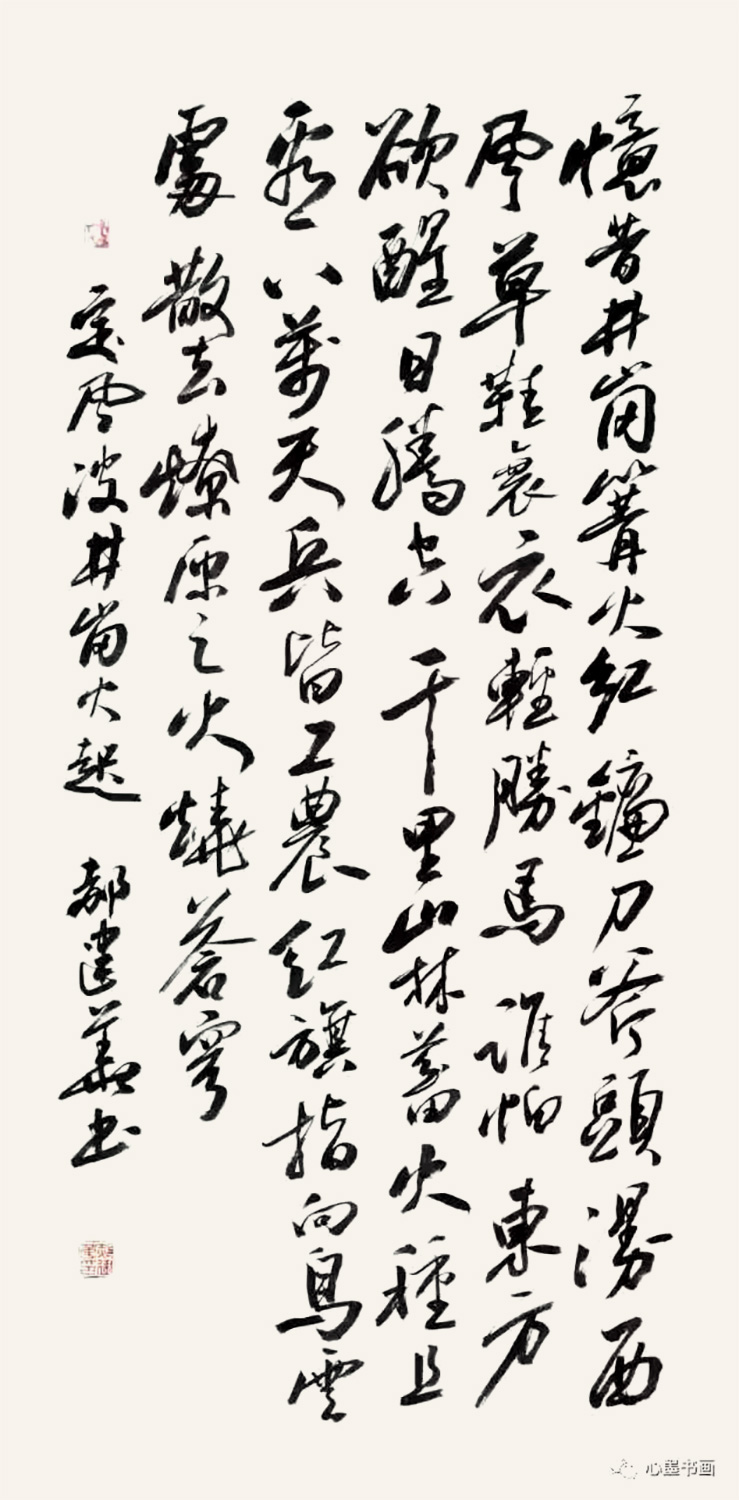 憶昔井崗篝火紅鐮刀斧頭盪西
風草鞋蓑衣輕勝馬誰怕東方
欲醒日騰空千里山林蓄火種且
看八萬天兵皆工農紅旗指向烏雲
處散去燎原之火燒蒼穹
定風波井崗火起 郝建華書
心墨书画